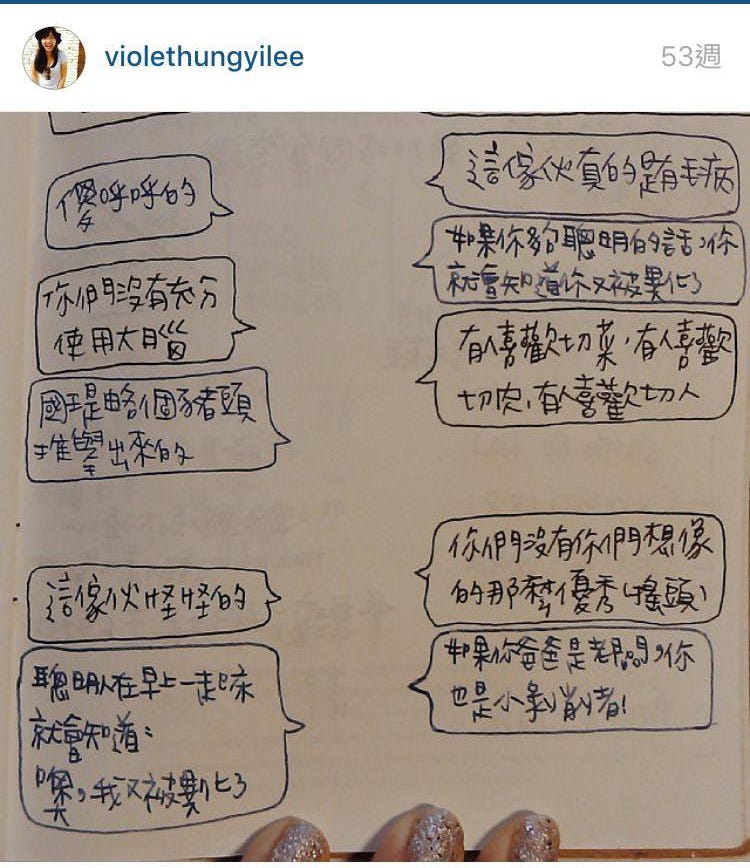 violethungyilee
53週
傻呼呼的
你們沒有充分
使用大腦
國王是略個豬頭
推舉出來的
這傢伙怪怪的
聰明人在早上一起床
就會知道:
噢,我又被異化了
這傢伙真的是有毛病
如果你夠聰明的話,你
就會知道你又被異化了
有人喜歡切菜,有人喜歡
切肉,有人喜歡切人
你們沒有你們想像
的那麼優秀(搖頭)
如果你爸爸是老闆,你
也是小剝削者!